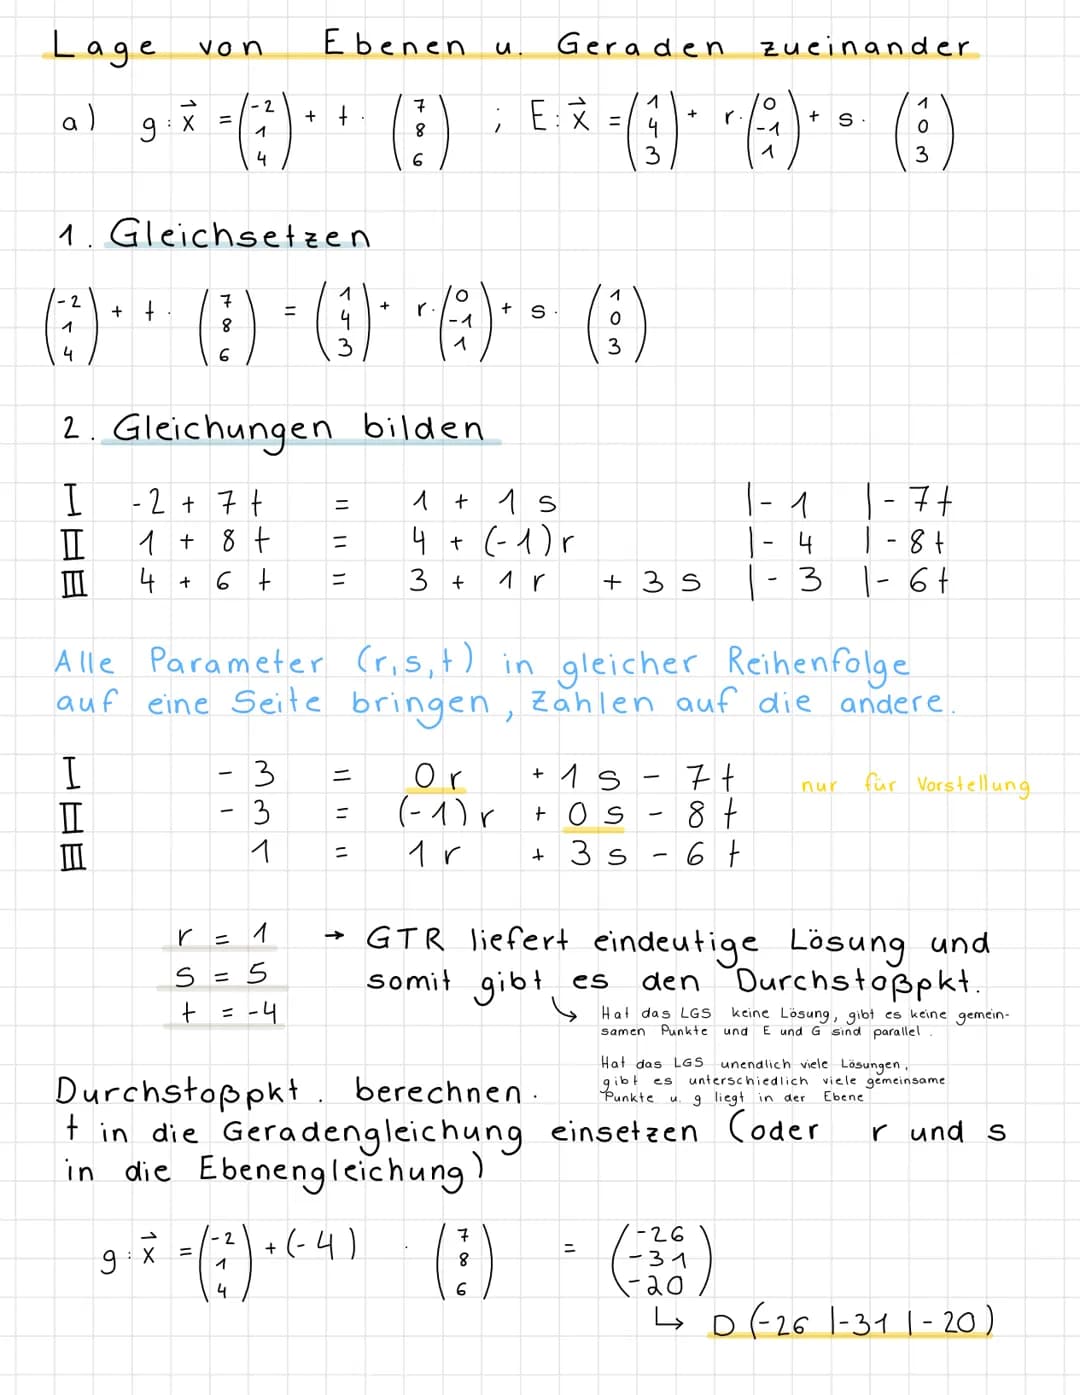 Lage von Ebenen u. Geraden zueinander
a) g: x⃗ = (-2 1 4) + t · (7 8 6) ; E: x⃗ = (1 4 3) + r · (0 -1 1) + s · (1 0 3)
1. Gleichsetzen
(-2 1 4) + t · (7 8 6) = (1 4 3) + r · (0 -1 1) + s · (1 0 3)
2. Gleichungen bilden
I -2 + 7t = 1 + 1s |-1 |-7t
II 1 + 8t = 4 + (-1)r |-4 |-8t
III 4 + 6t = 3 + 1r + 3s |-3 |-6t
Alle Parameter (r,s,t) in gleicher Reihenfolge
auf eine Seite bringen, Zahlen auf die andere.
I -3 = 0r + 1s - 7t nur für Vorstellung
II -3 = (-1)r + 0s - 8t
III 1 = 1r + 3s - 6t
r = 1 → GTR liefert eindeutige Lösung und
s = 5 somit gibt es den Durchstoßpkt.
t = -4 ↳ Hat das LGS keine Lösung, gibt es keine gemein-
samen Punkte und E und G sind parallel.
Hat das LGS unendlich viele Lösungen,
gibt es unterschiedlich viele gemeinsame
Punkte u. g liegt in der Ebene
Durchstoßpkt. berechnen.
t in die Geradengleichung einsetzen (oder r und s
in die Ebenengleichung)
g: x⃗ = (-2 1 4) + (-4) · (7 8 6) = (-26 -31 -20)
↳ D (-26 |-31 |-20)